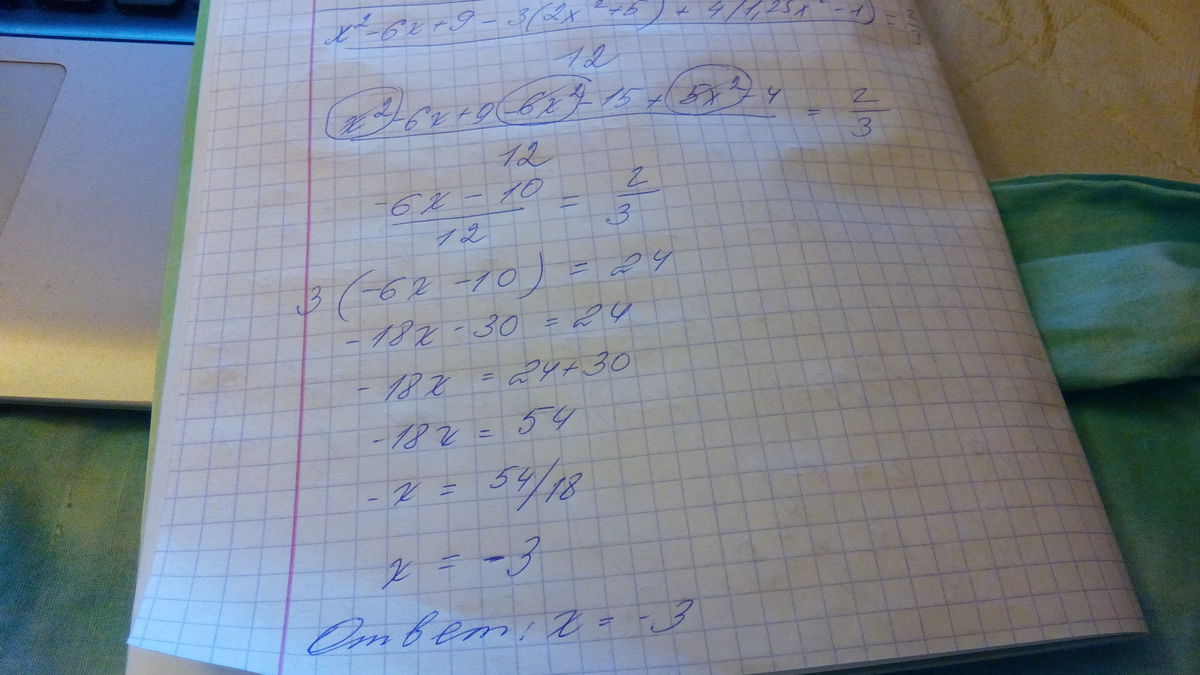 x² - 6x + 9 - 3(2x² + 5) + 4(1,25x² - 1) = 2/3
12
x² - 6x + 9 - 6x² - 15 + 5x² - 4 = 2/3
12
-6x - 10 = 2/3
12
3(-6x - 10) = 24
-18x - 30 = 24
-18x = 24 + 30
-18x = 54
-x = 54/18
x = -3
Ответ: x = -3